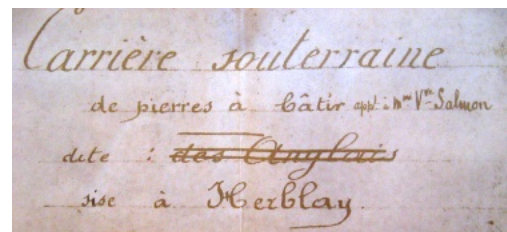 Carrière souterraine
de pierres à bâtir appt à Mme Vve Salmon
dite : des Anglais
sise à Herblay